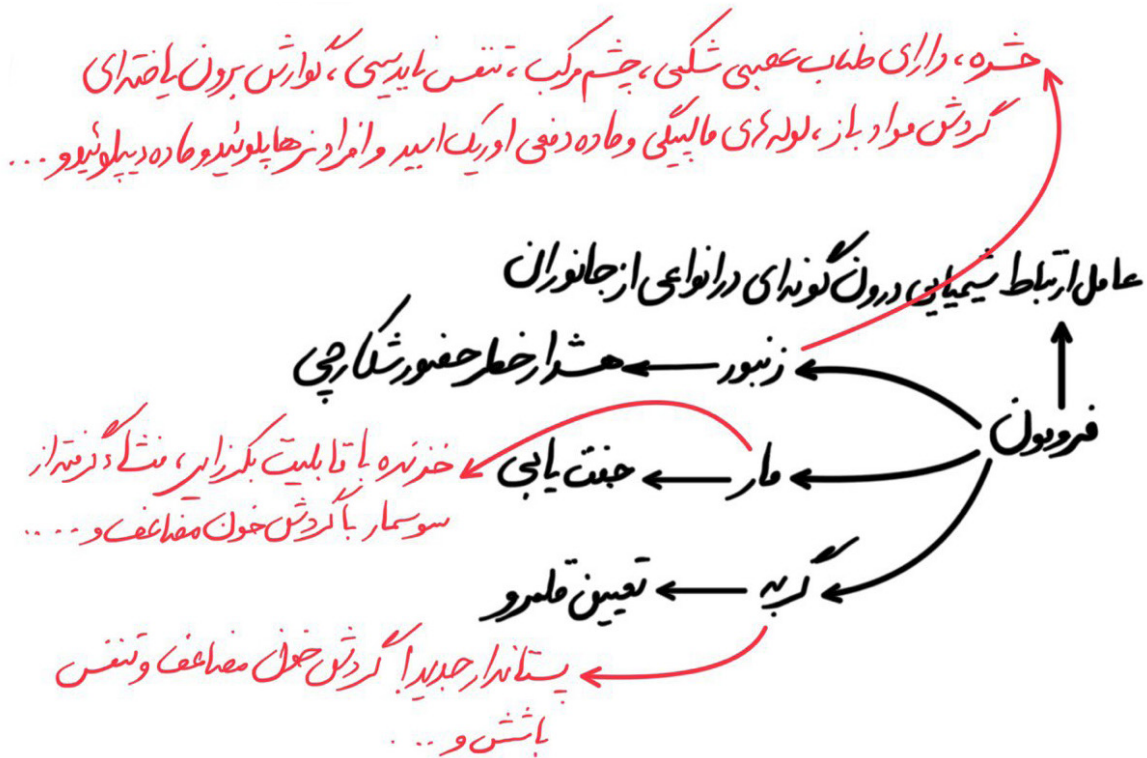 حشره، دارای طناب عصبی شکمی، چشم مرکب، تنفس نایدیسی، گوارش برون یاخته‌ای
گردش مواد باز، لوله های مالپیگی و ماده دفعی اوریک اسید و افراد نر هاپلوئید و ماده دیپلوئید و ...
عامل ارتباط شیمیایی درون گونه‌ای در انواعی از جانوران
زنبور ← هشدار خطر حضور شکارچی
فرومون
مار ← جفت یابی
خزنده با قابلیت بکرزایی، منشاء گرفته از
سوسمار با گردش خون مضاعف و ....
گربه ← تعیین قلمرو
پستاندار گردش خون مضاعف و تنفس
با شش و ....